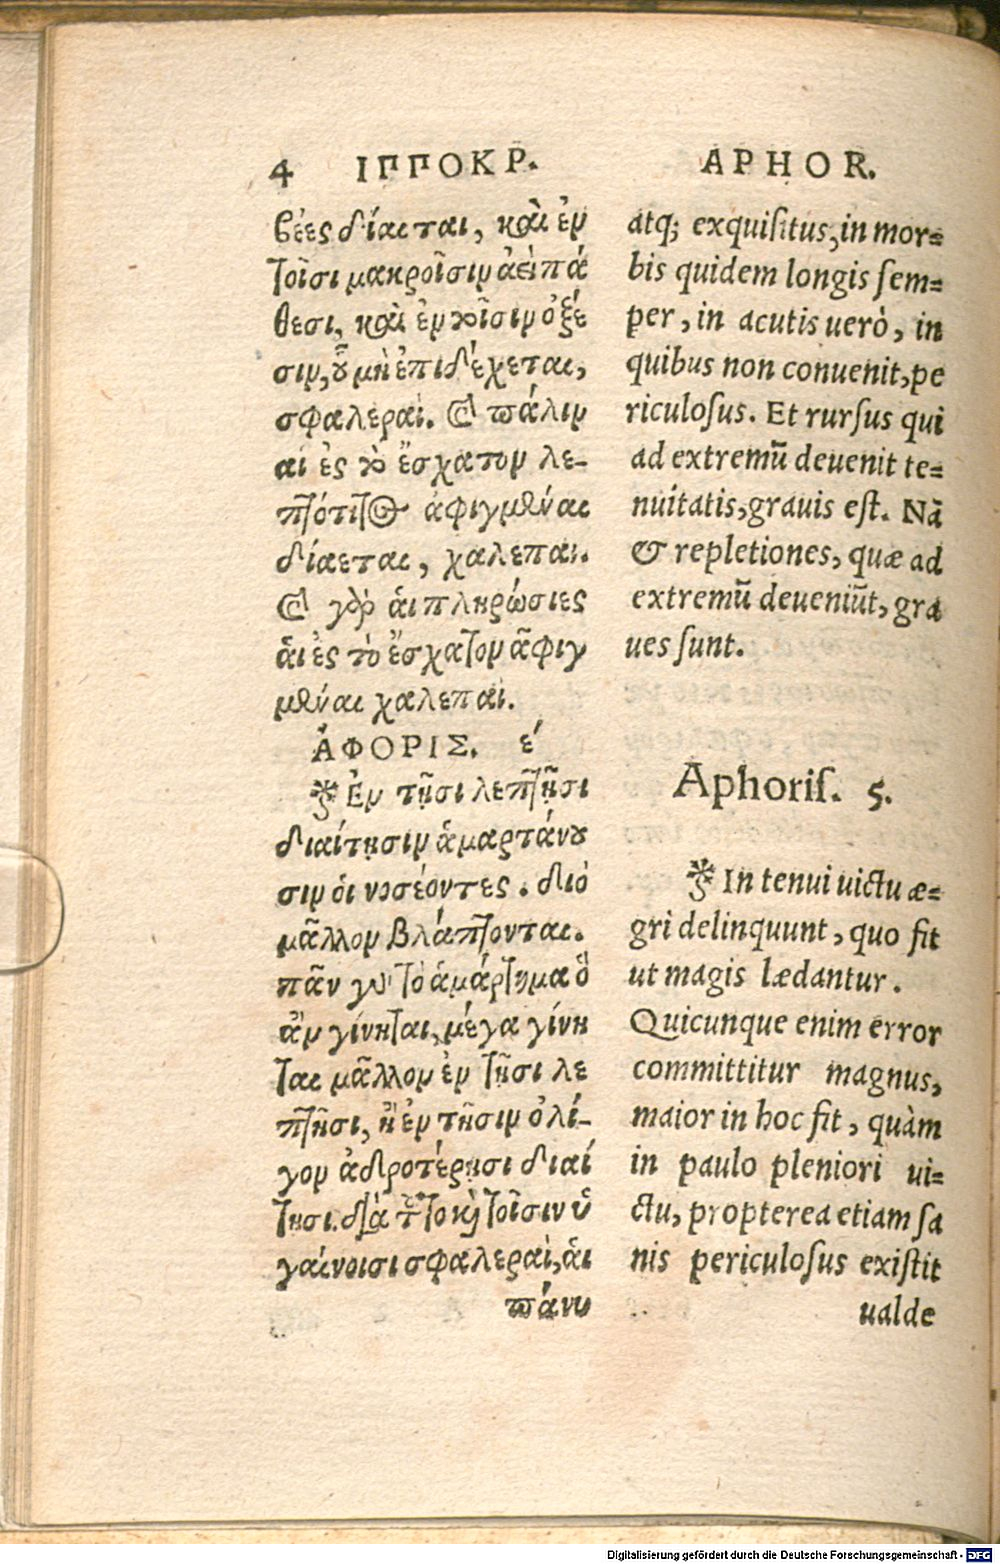 4 ΙΠΠΟΚΡ.
βέες δίαιται, καὶ ἐν
τοῖσι μακροῖσιν ἀεὶ πά
θεσι, καὶ ἐν τοῖσιν ὀξέ
σιν, οὗ μὴ ἐπιδέχεται,
σφαλεραί. Καὶ πάλιν
αἱ ἐς τὸ ἔσχατον λε-
πτότητος ἀφιγμέναι
δίαεται, χαλεπαί.
Καὶ γὰρ ἁι πληρώσιες
ἁι ἐς τὸ ἔσχατον ἀφιγ
μέναι χαλεπαί.
ἈΦΟΡΙΣ. έ
Ἐν τῇσι λεπτῇσι
διαίτῃσιν ἁμαρτάνου
σιν ὁι νοσέοντες. διὸ
μᾶλλον βλάπτονται.
πᾶν γὰρ τὸ ἁμάρτημα ὃ
ἂν γίνηται, μέγα γίνη
ται μᾶλλον ἐν τῇσι λε
πτῇσι, ἢ ἐν τῇσιν ὀλί-
γον ἁδροτέρῃσι διαί
τῃσι. διὰ τοῦτο καὶ τοῖσιν ὑ
γαίνοισι σφαλεραὶ, ἁι
πάνυ
APHOR.
atq; exquisitus, in mor=
bis quidem longis sem=
per, in acutis uerò, in
quibus non conuenit, pe
riculosus. Et rursus qui
ad extremũ deuenit te=
nuitatis, grauis est. Nã
& repletiones, quæ ad
extremũ deueniũt, gra
ues sunt.
Aphoris. 5.
In tenui uictu æ=
gri delinquunt, quo fit
ut magis lædantur.
Quicunque enim error
committitur magnus,
maior in hoc fit, quàm
in paulo pleniori ui=
ctu, propterea etiam sa
nis periculosus existit
ualde
Digitalisierung gefördert durch die Deutsche Forschungsgemeinschaft - DFG